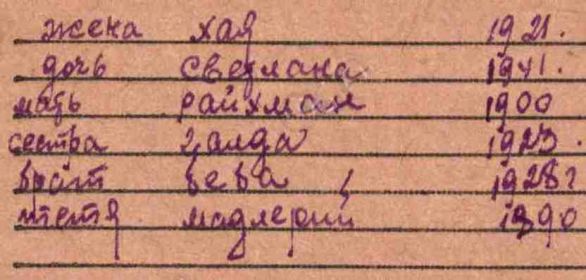 жена хая 1921.
дочь светлана 1941.
мать райхман 1900
сестра голда 1923.
брат вева 1928г
тетя мадлерий 1890